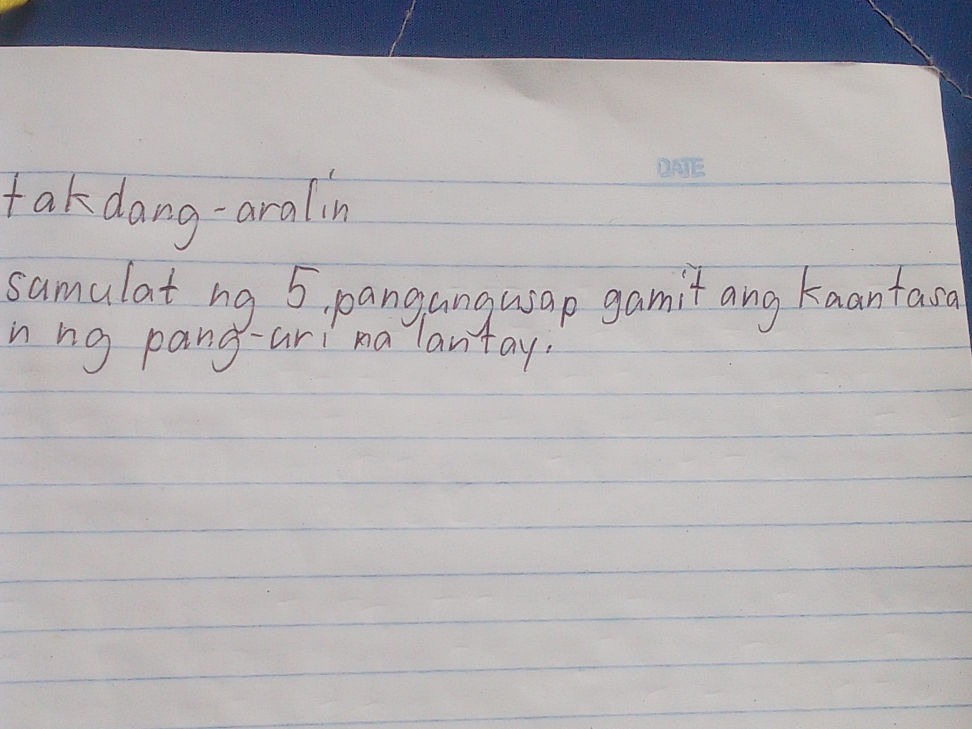 DATE
takdang-aralin
sumulat ng 5 pangungusap gamit ang kaantasa
n ng pang-uri na lantay.